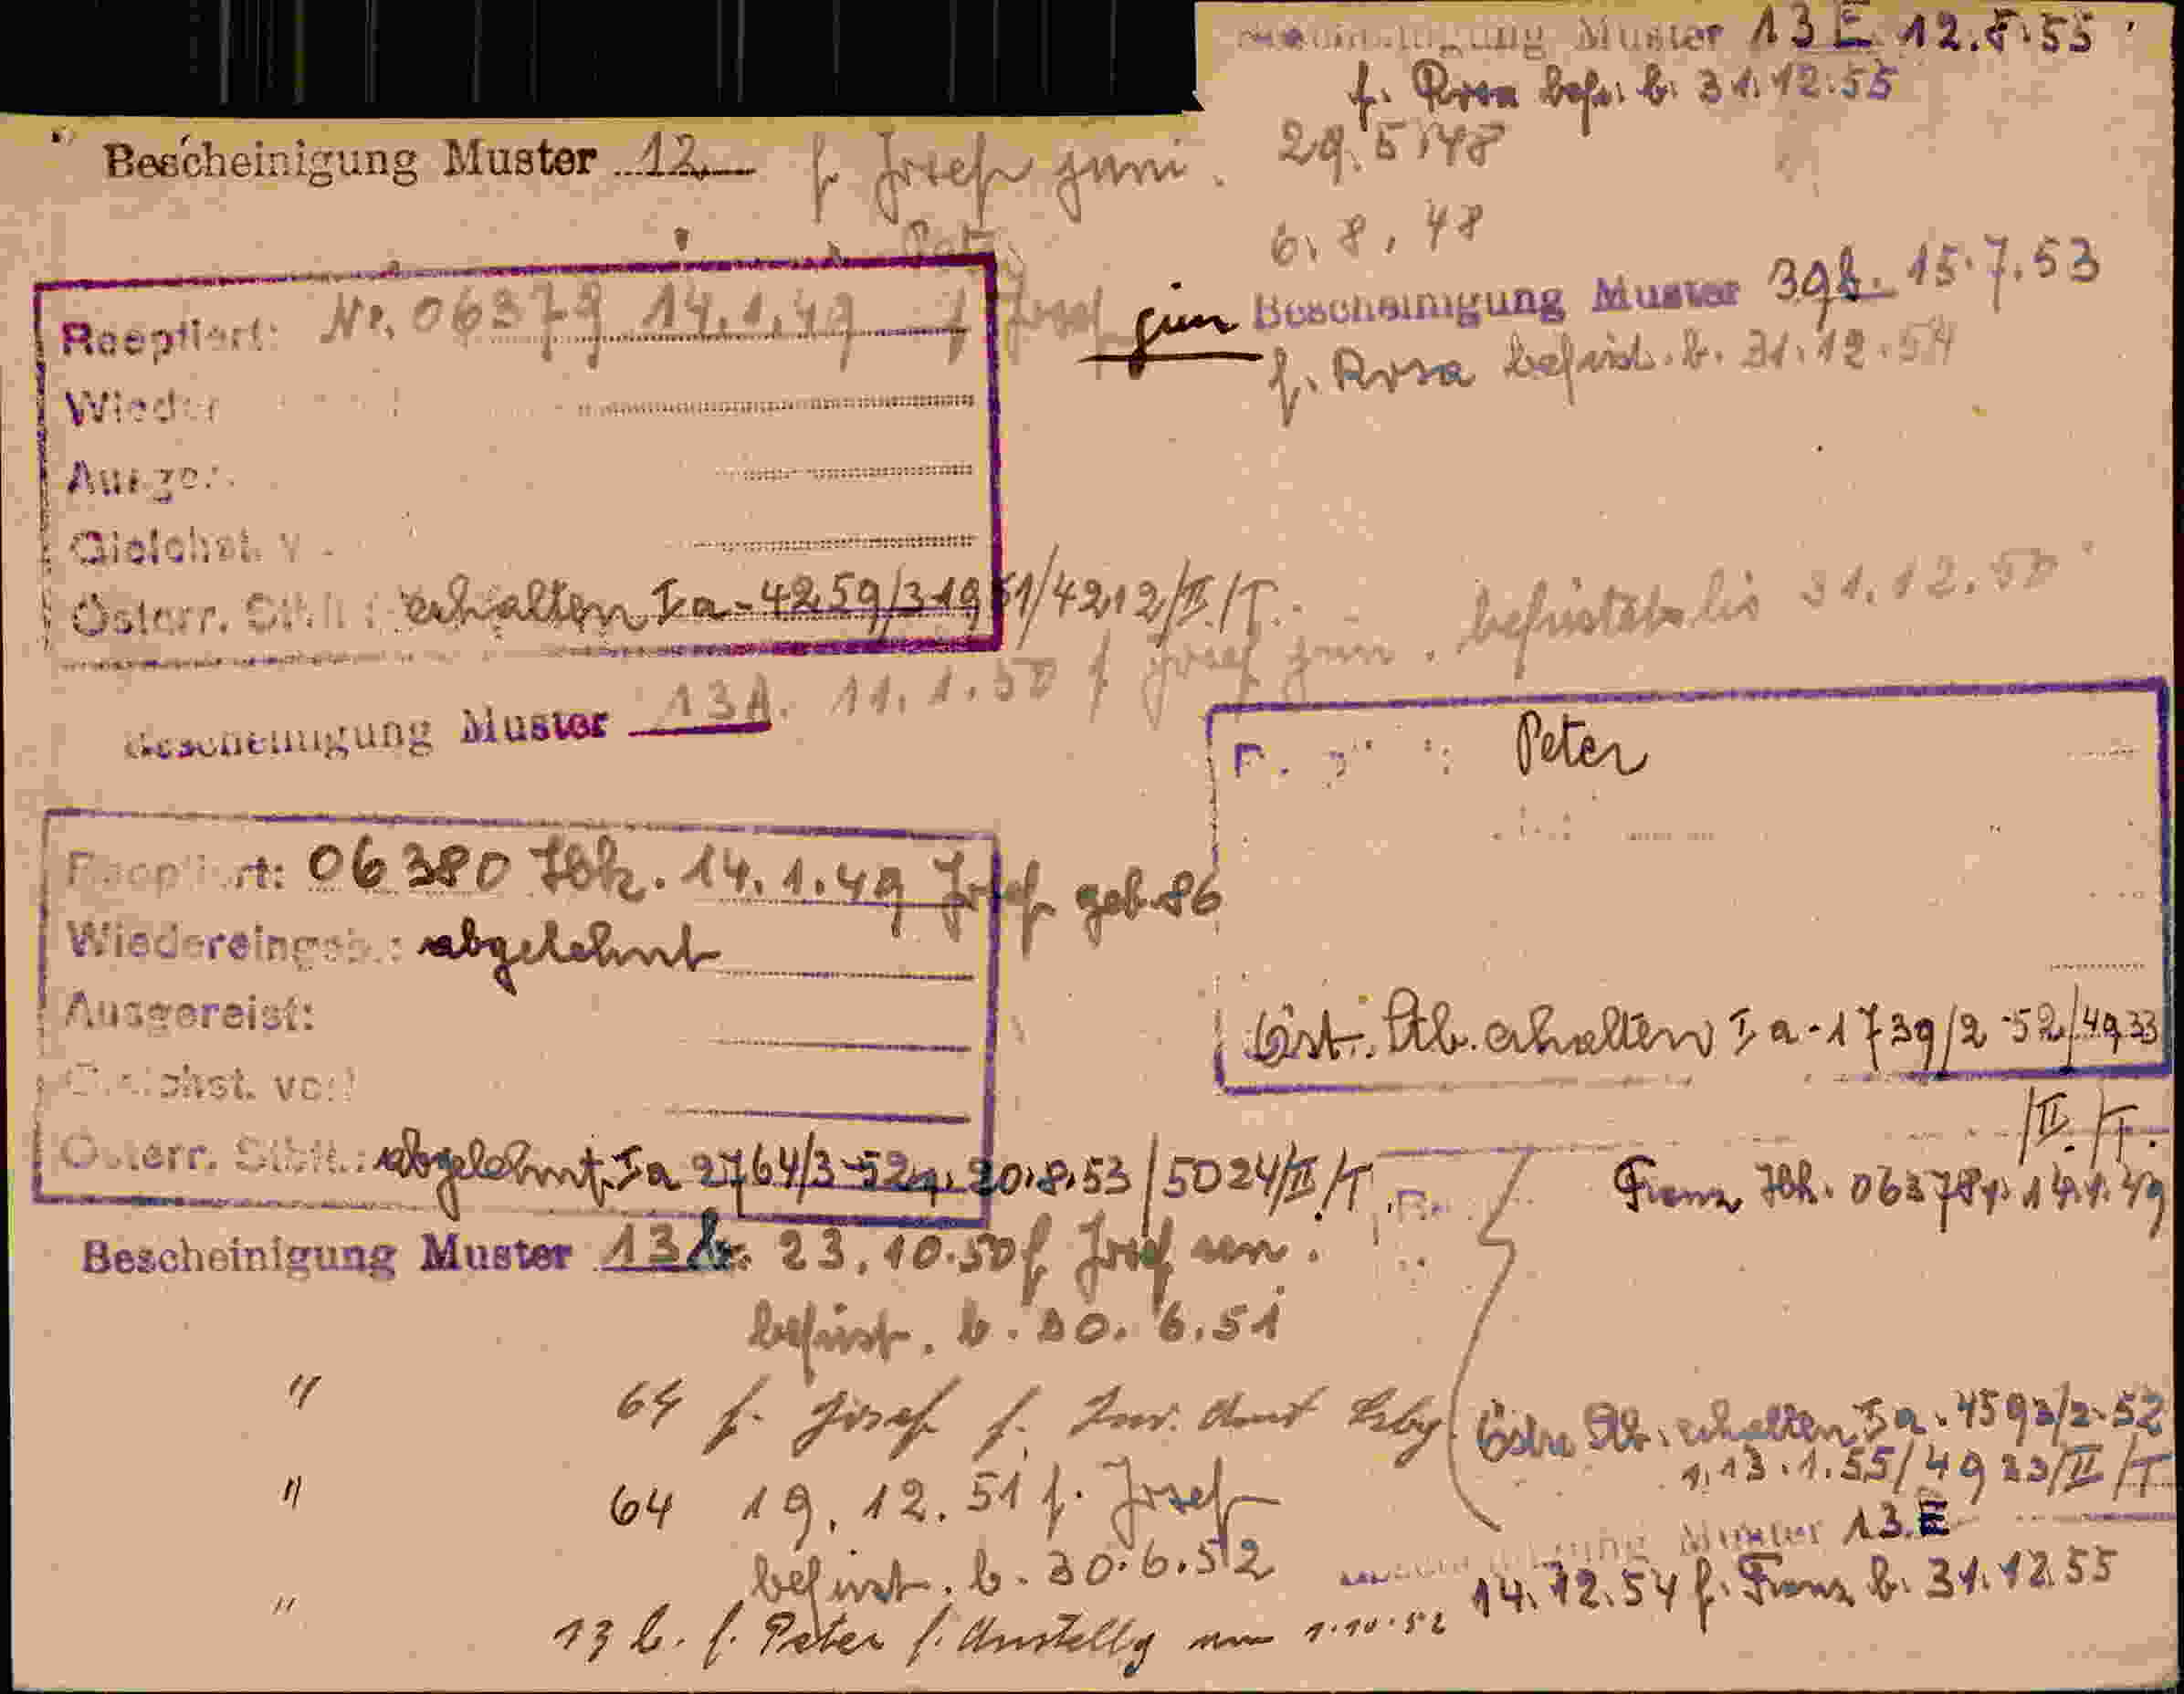 Muster 13 E 12.8.55
f. Rosa befr. b. 31.12.55
Bescheinigung Muster 12 f. Josef juni.
29.5.48
6.8.48
Reoptiert: Nr. 06379 14.1.49 f Josef jun
Wieder
Ausger.
Gleichst. v
Österr. Stblt: erhalten Ia-4259/3-1951/4212/II/T.
Bescheinigung Muster 39b. 15.7.53
f. Rosa befrist. b. 31.12.54
Bescheinigung Muster 13A. 11.1.50 f Josef jun. befristet bis 31.12.50
Peter
Öst. Stb. erhalten Ia-1739/2-52/4933
/II./T.
Reoptiert: 06380 Ibk. 14.1.49 Josef geb. 86
Wiedereingeb.: abgelehnt
Ausgereist:
Gleichst. vor:
Österr. Stblt.: abgelehnt Ia 2764/3-52 v. 20.8.53/5024/II/T.
Franz Ibk. 06378 v. 14.1.49
Bescheinigung Muster 13 b. 23.10.50 f Josef sen.
befrist. b. 30.6.51
" 64 f. Josef f. Inv. Amt
" 64 19.12.51 f. Josef
befrist. b. 30.6.52
" 13 b. f. Peter f. Anstellg 1.10.52
Östr. Stb. erhalten Ia-4593/2-52
v. 13.1.55/4923/II/T
Muster 13.E
14.12.54 f. Franz b. 31.12.55